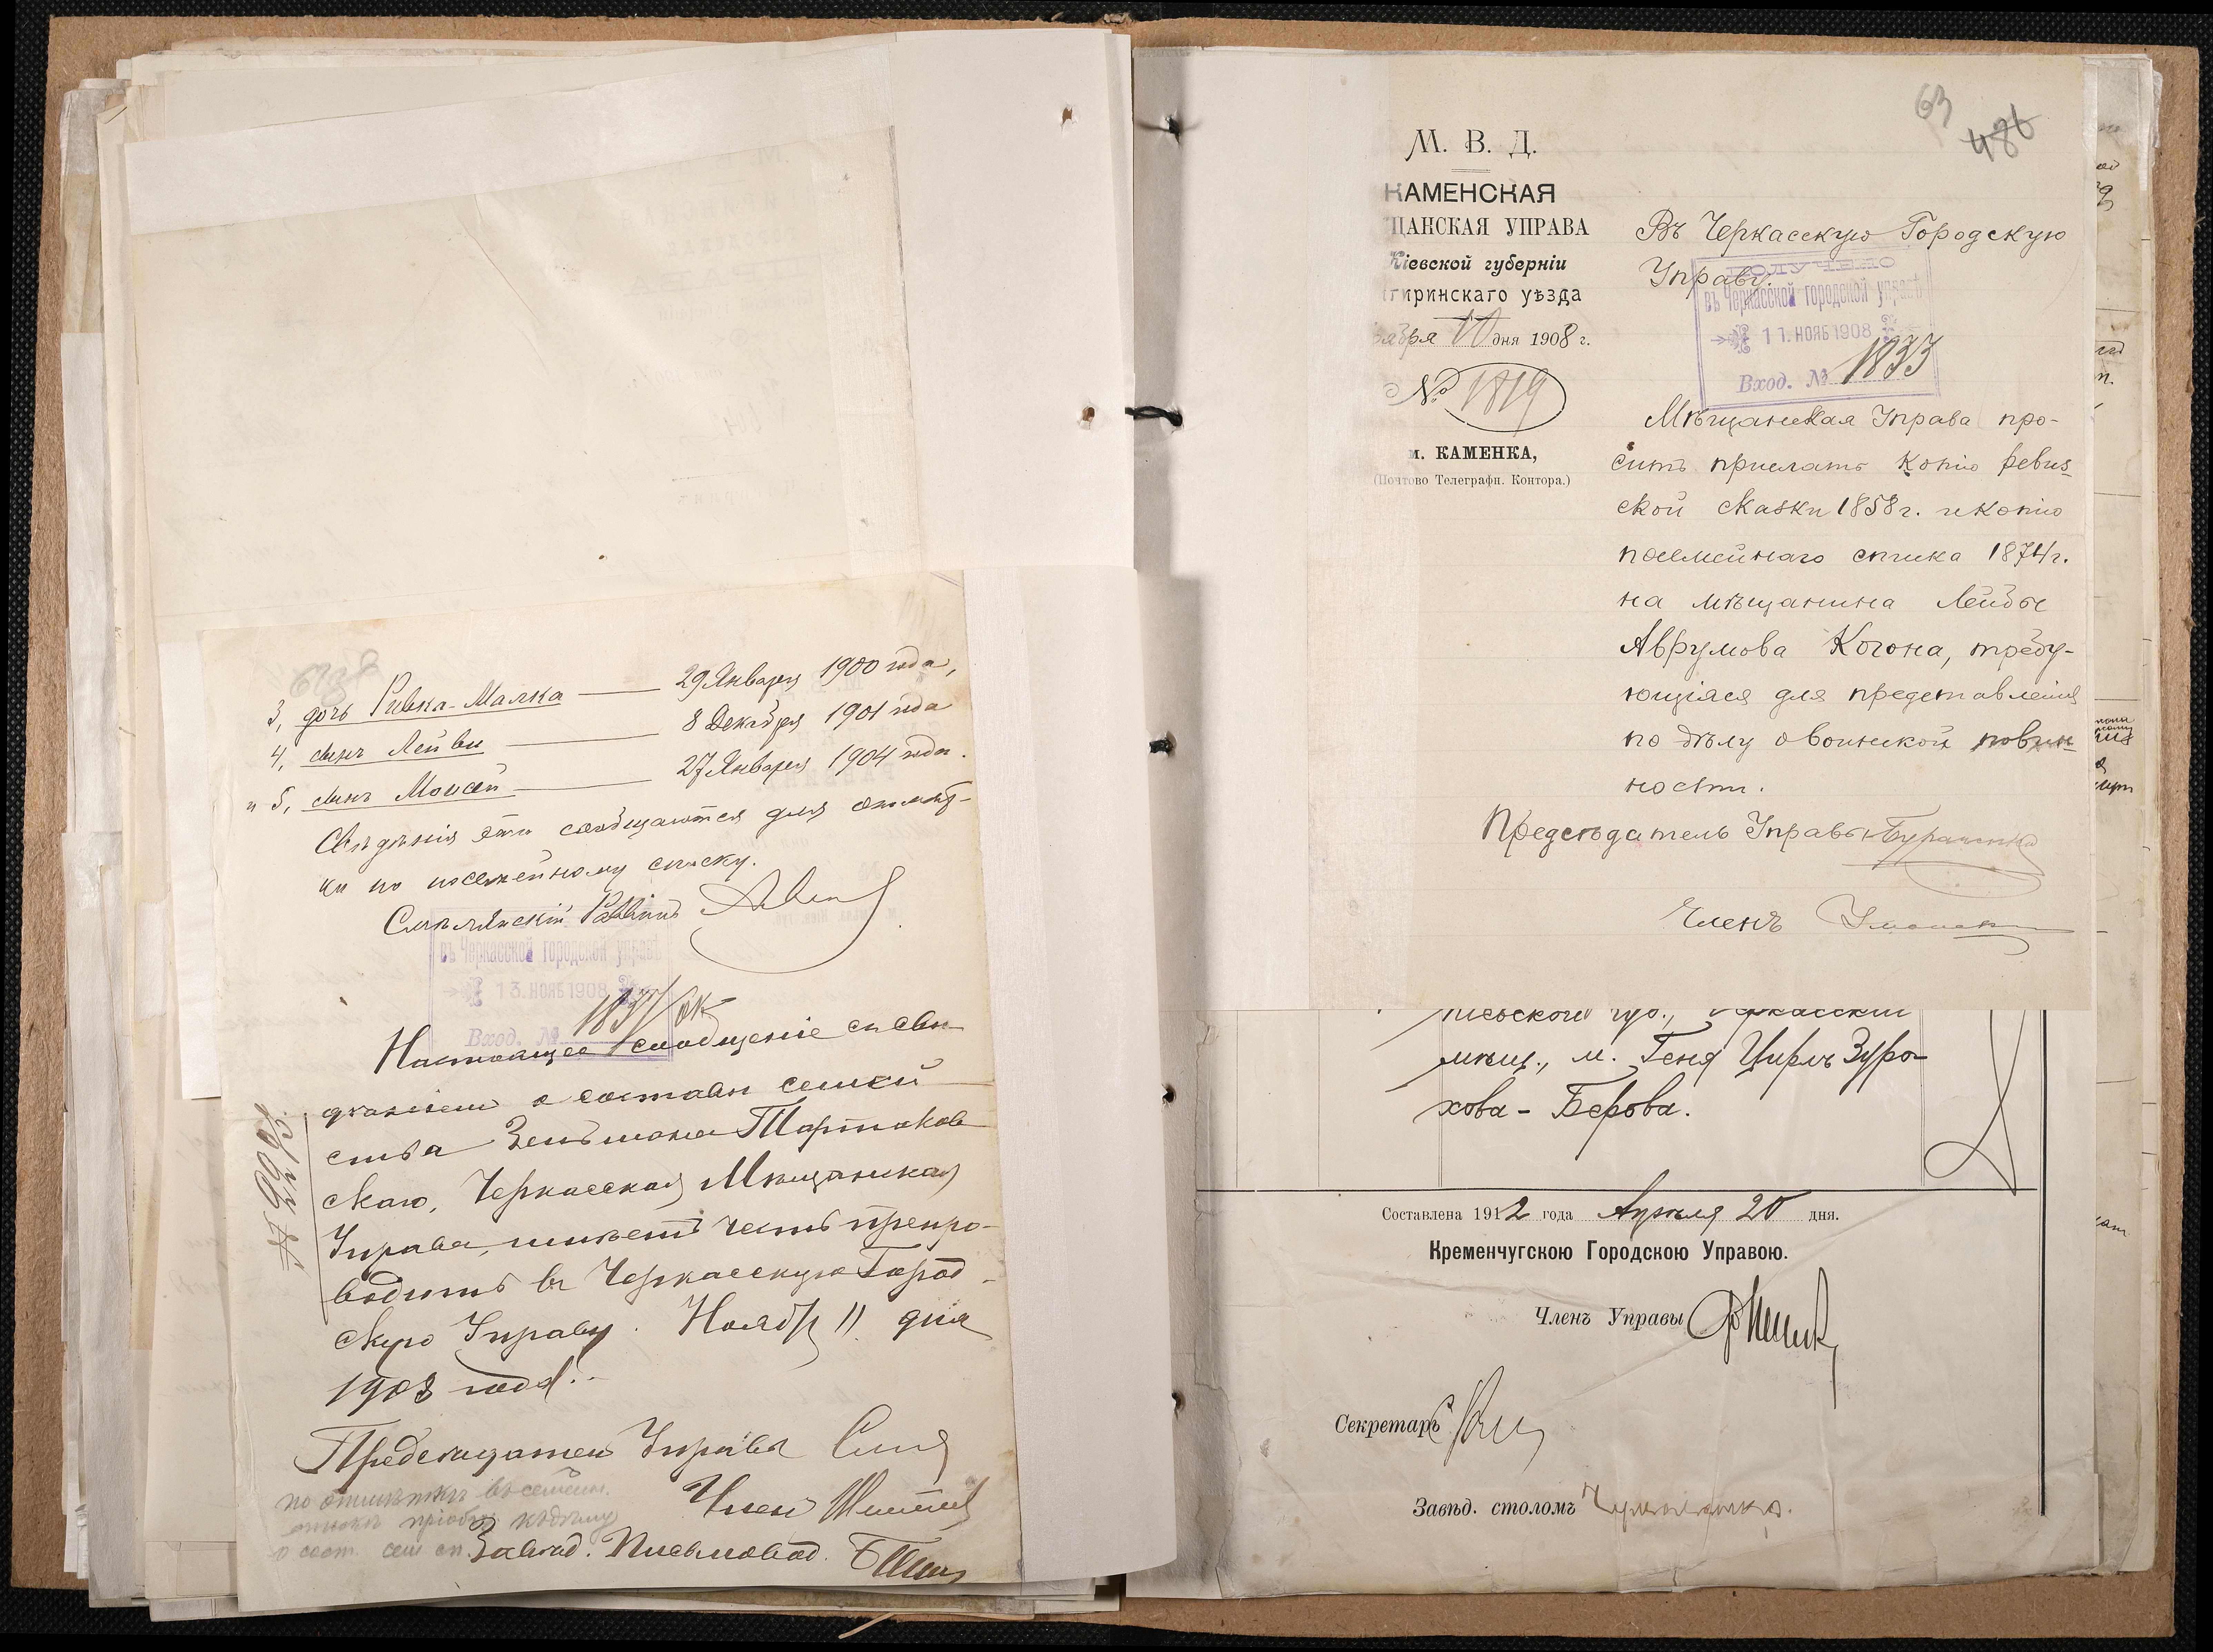 3, дочь Ривка-Малка — 29 Января 1900 года,
4, сынъ Лейви — 8 Декабря 1901 года
и 5, сынъ Моисей — 27 Января 1904 года.
Свѣдѣнія эти сообщаются для отмѣт-
ки по посемейному списку.
Смѣлянскій Раввинъ
въ Черкасской городской управѣ
13. НОЯБ 1908
Вход. № 1837
Настоящее сообщеніе съ свѣ-
дѣніемъ о составѣ семей
ства Зельмана Тартаков
скаго, Черкасская Мѣщанская
Управа, имѣетъ честь препро-
водить въ Черкасскую Город-
скую Управу. Ноября 11 дня
1908 года.
Предсѣдатель Управы
Членъ
Завѣд. Письмовод.
63
486
М. В. Д.
КАМЕНСКАЯ
ЩАНСКАЯ УПРАВА
Кіевской губерніи
гиринскаго уѣзда
ября 10 дня 1908 г.
№ 1819
м. КАМЕНКА,
(Почтово Телеграфн. Контора.)
Въ Черкасскую Городскую
Управу.
ПОЛУЧЕНО
въ Черкасской городской управѣ
11. НОЯБ 1908
Вход. № 1833
Мѣщанская Управа про-
ситъ прислать копію ревиз
ской сказки 1858 г. и копію
посемейнаго списка 1874 г.
на мѣщанина Лейбы
Аврумова Когона, требу-
ющіяся для представленія
по дѣлу о воинской повин
ности.
Предсѣдатель Управы
Членъ
мѣщ., м. Геня Цирль Зуро-
хова - Берова.
Составлена 1912 года Апрѣля 20 дня.
Кременчугскою Городскою Управою.
Членъ Управы
Секретарь
Завѣд. столомъ